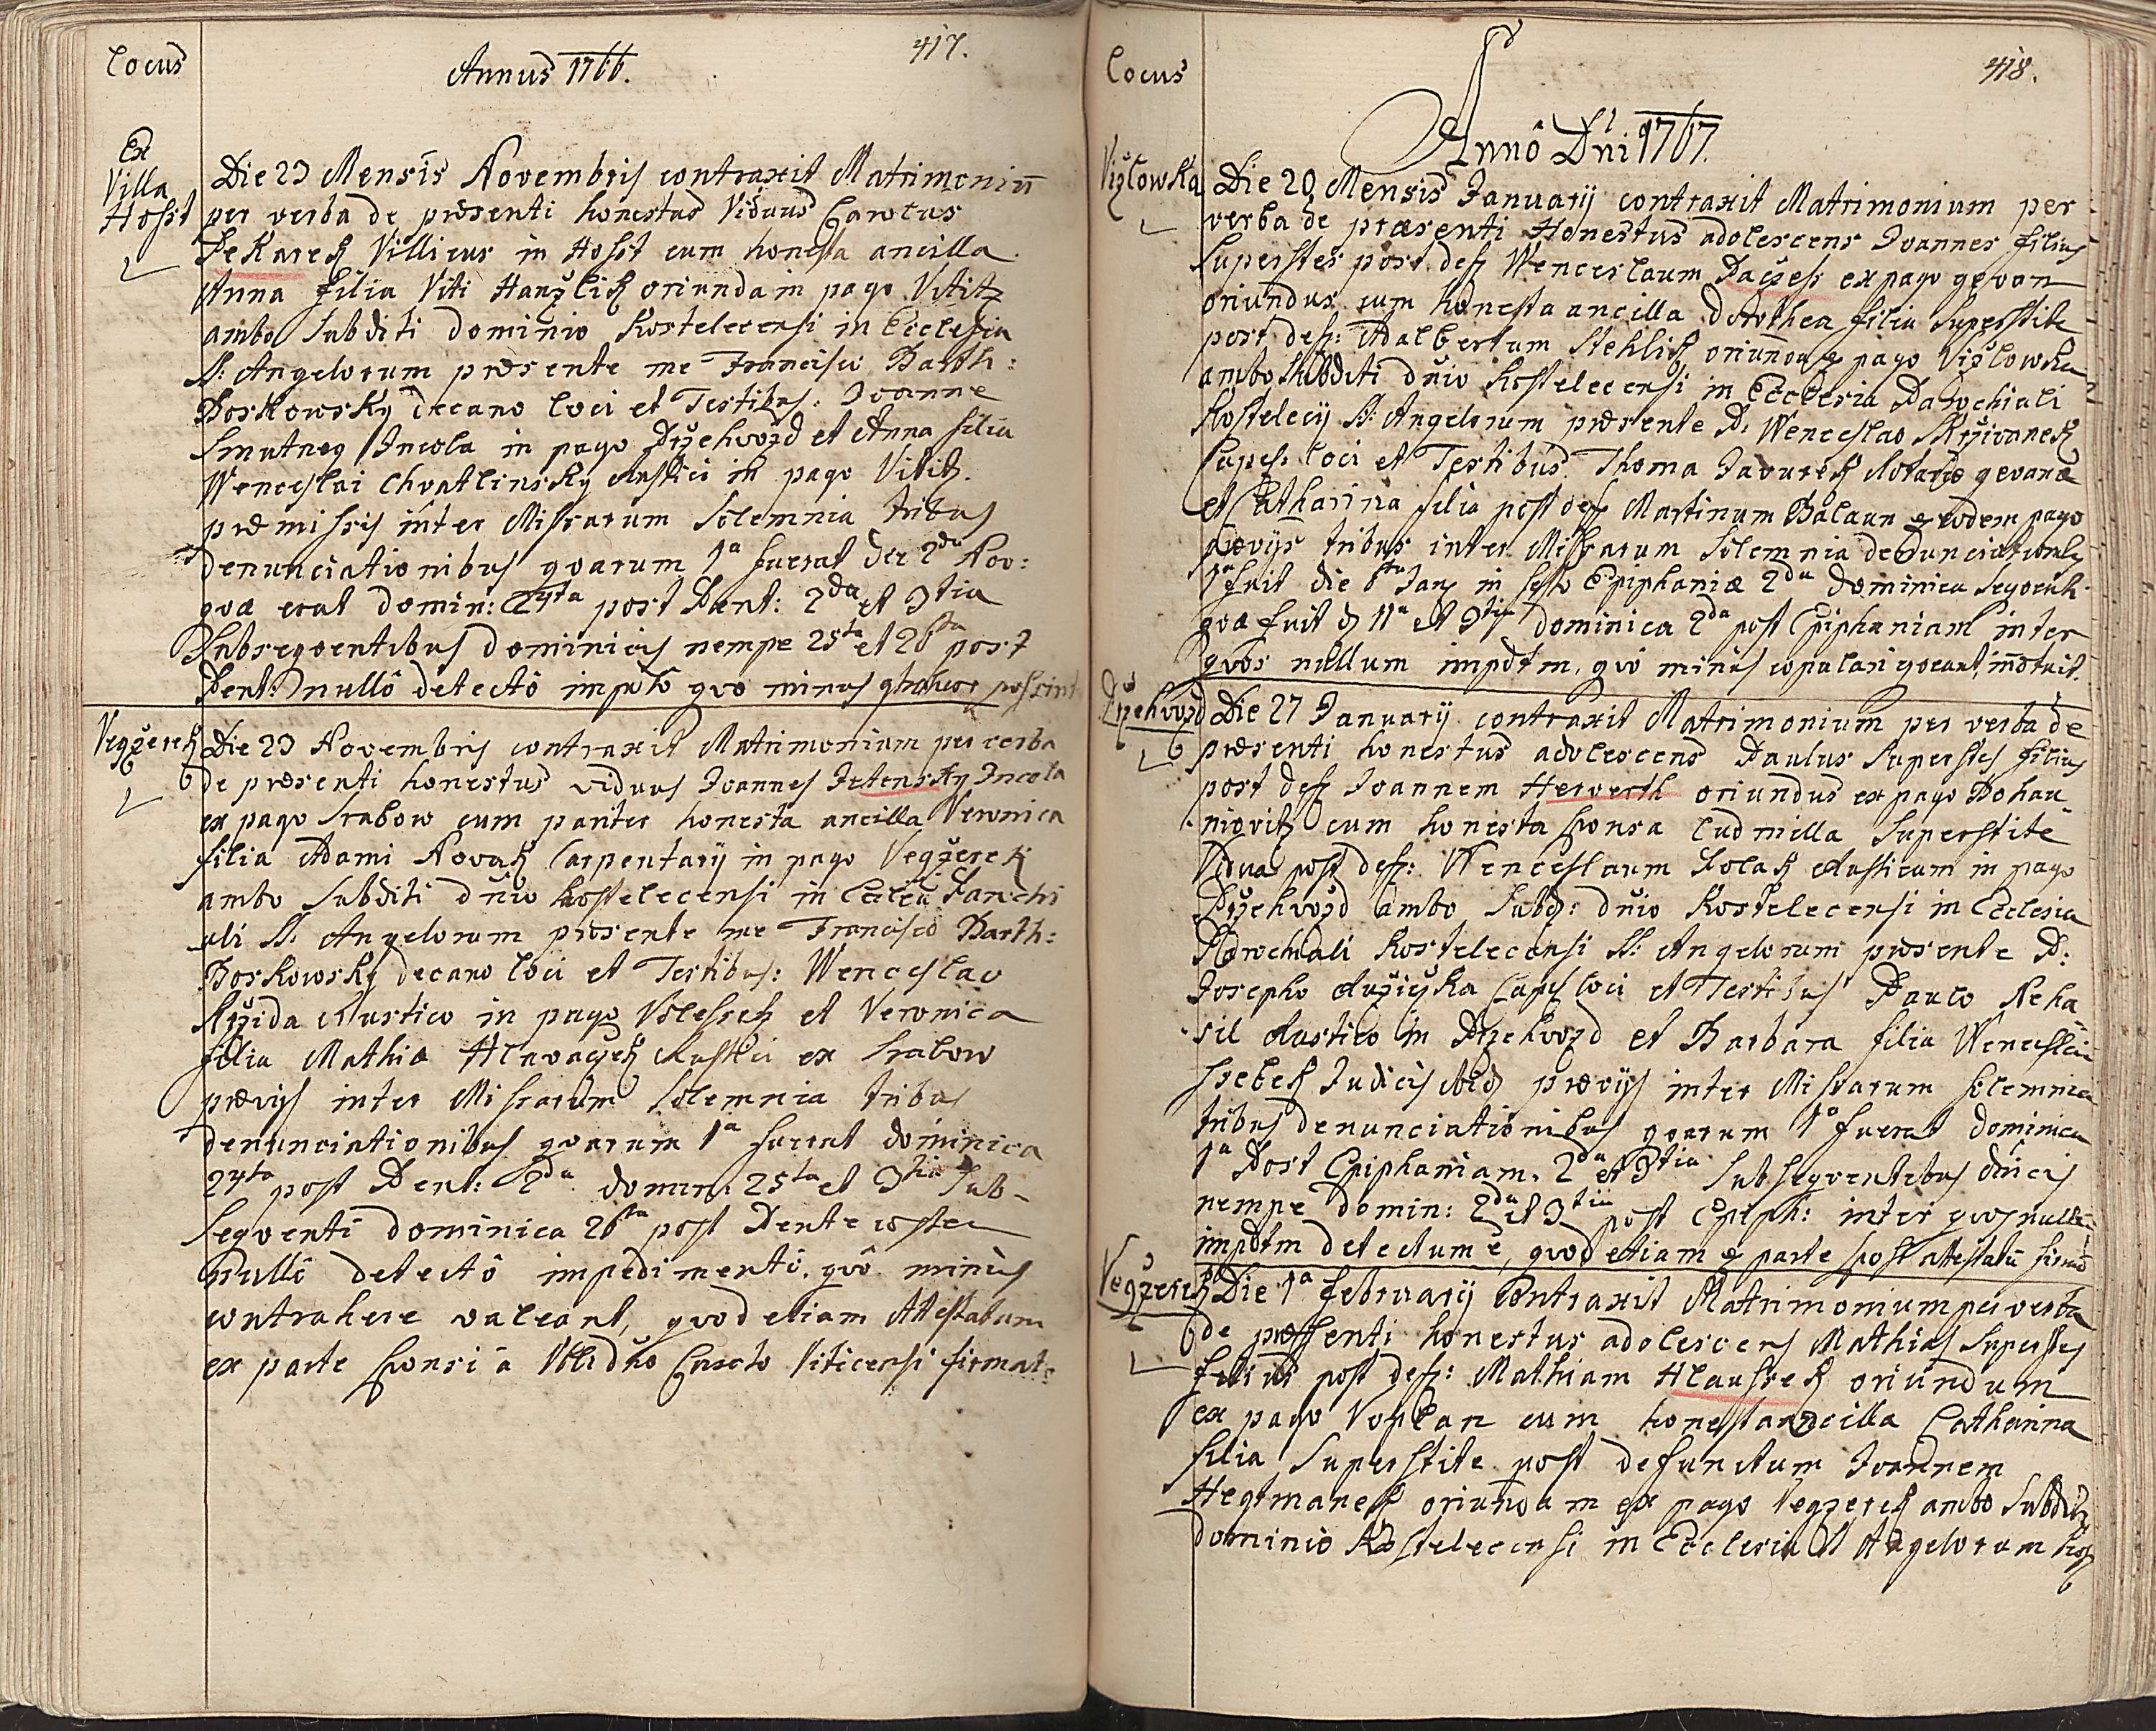 Locus
Annus 1766.
417.
Ex
Villa
Hosst
Die 23 Mensis Novembris contraxit Matrimoniū
per verba de præsenti honestus Viduus Carolus
Pekarek Villicus in Hosst cum honesta ancilla
Anna filia Viti Hanzlik oriunda in pago Vititz
ambo Subditi dominio Kostelecensi in Ecclesia
SS: Angelorum præsente me Francisco Barth:
Boskowsky decano loci et Testibus: Joanne
Smutneg Incola in pago Przehvozd et Anna filia
Wenceslai Chvatlinsky Rustici in pago Vititz.
præmissis inter Missarum Solemnia tribus
denunciationibus qvarum 1a fuerat die 2da Nov:
qvæ erat domin: 24ta post Pent: 2da et 3tia
Subseqventibus dominicis nempe 25ta et 26ta post
Pent: nullô detectô qvo minus possint
Vegzerek
Die 23 Novembris contraxit Matrimonium per verba
de præsenti honestus viduus Joannes Jetensky Incola
ex pago Srabow cum pariter honesta ancilla Veronica
filia Adami Novak Carpentarij in pago Vegzerek
ambo Subditi dnio Kostelecensi in Parchi
ali SS: Angelorum præsente me Francisco Barth:
Boskowsky decano loci et Testibus: Wenceslao
Krzida Rustico in pago et Veronica
filia Mathiæ Hlavaczek Rustici ex Srabow
prævijs inter Missarum Solemnia tribus
denunciationibus qvarum 1a fuerat dominica
24ta post Pent: 2da domin: 25ta et 3tia Sub-
seqventi dominica 26ta post Pentecosten
nullô detectô impedimentô, qvô minùs
contrahere valeant, qvod etiam Attestatum
ex parte sponsi à Viticensi firmat:
Locus
418.
Annô Dni 1767.
Vizlowka
Die 20 Mensis Januarij contraxit Matrimonium per
verba de præsenti Honestus adolescens Joannes filius
Superstes post def Wenceslaum ex pago gevan
oriundus cum honesta ancilla Dorothea filia Superstite
post def: Adalbertum Stehlik oriunda e pago Vizlowka
ambo Subditi dnio Kostelecensi in Ecclesia Parochiali
Kostelecij SS: Angelorum præsente P. Wenceslao Skrzivanek
Capel: loci et Testibus Thoma Javurek gevanæ
et Catharina filia post def Martinum Balaun ex eodem pago
prævijs tribus inter Missarum Solemnia denunciationib
1a fuit die 6ta Jan in festo Epiphaniæ 2da Dominica seqventi
qvæ fuit 11a et 3tia dominica 2da post Epiphaniam inter
qvos nullum impdtm, qvô minùs copulari qveant,
Przehvozd
Die 27 Januarij contraxit Matrimonium per verba de
præsenti honestus adolescens Paulus Superstes filius
post def Joannem Herverth oriundus ex pago Bohau
niovitz cum honesta sponsa Ludmilla Superstite
Vidua post def: Wenceslaum Kolak Rusticum in pago
Przehvozd ambo Subd: dnio Kostelecensi in Ecclesia
Parochiali Kostelecensi SS: Angelorum præsente P:
Josepho Ruziczka Capel loci et Testibus Paulo Neha
sil Rustico in Przehvozd et Barbara filia Wenceslai
Ssebek Judicis ibid prævijs inter Missarum Solemnia
tribus denunciationibus qvarum 1a fuerat dominica
1a Post Epiphaniam. 2da et 3tia Subseqventibus dnicis
nempe Domin: 2da et 3tia post Epiph: inter qvos nullū
impdtm detectum ē, qvod etiam e parte attestatū
Vegzerek
Die 1a februarij Contraxit Matrimonium per verba
de præsenti honestus adolescens Mathias Superstes
filius post def: Mathiam Hlaussek oriundum
ex pago cum honesta ancilla Catharina
filia Superstite post defunctum Joannem
Hegtmanek oriundam ex pago Vegzerek ambo Subditi
dominio Kostelecensi in Ecclesia SS Angelorum